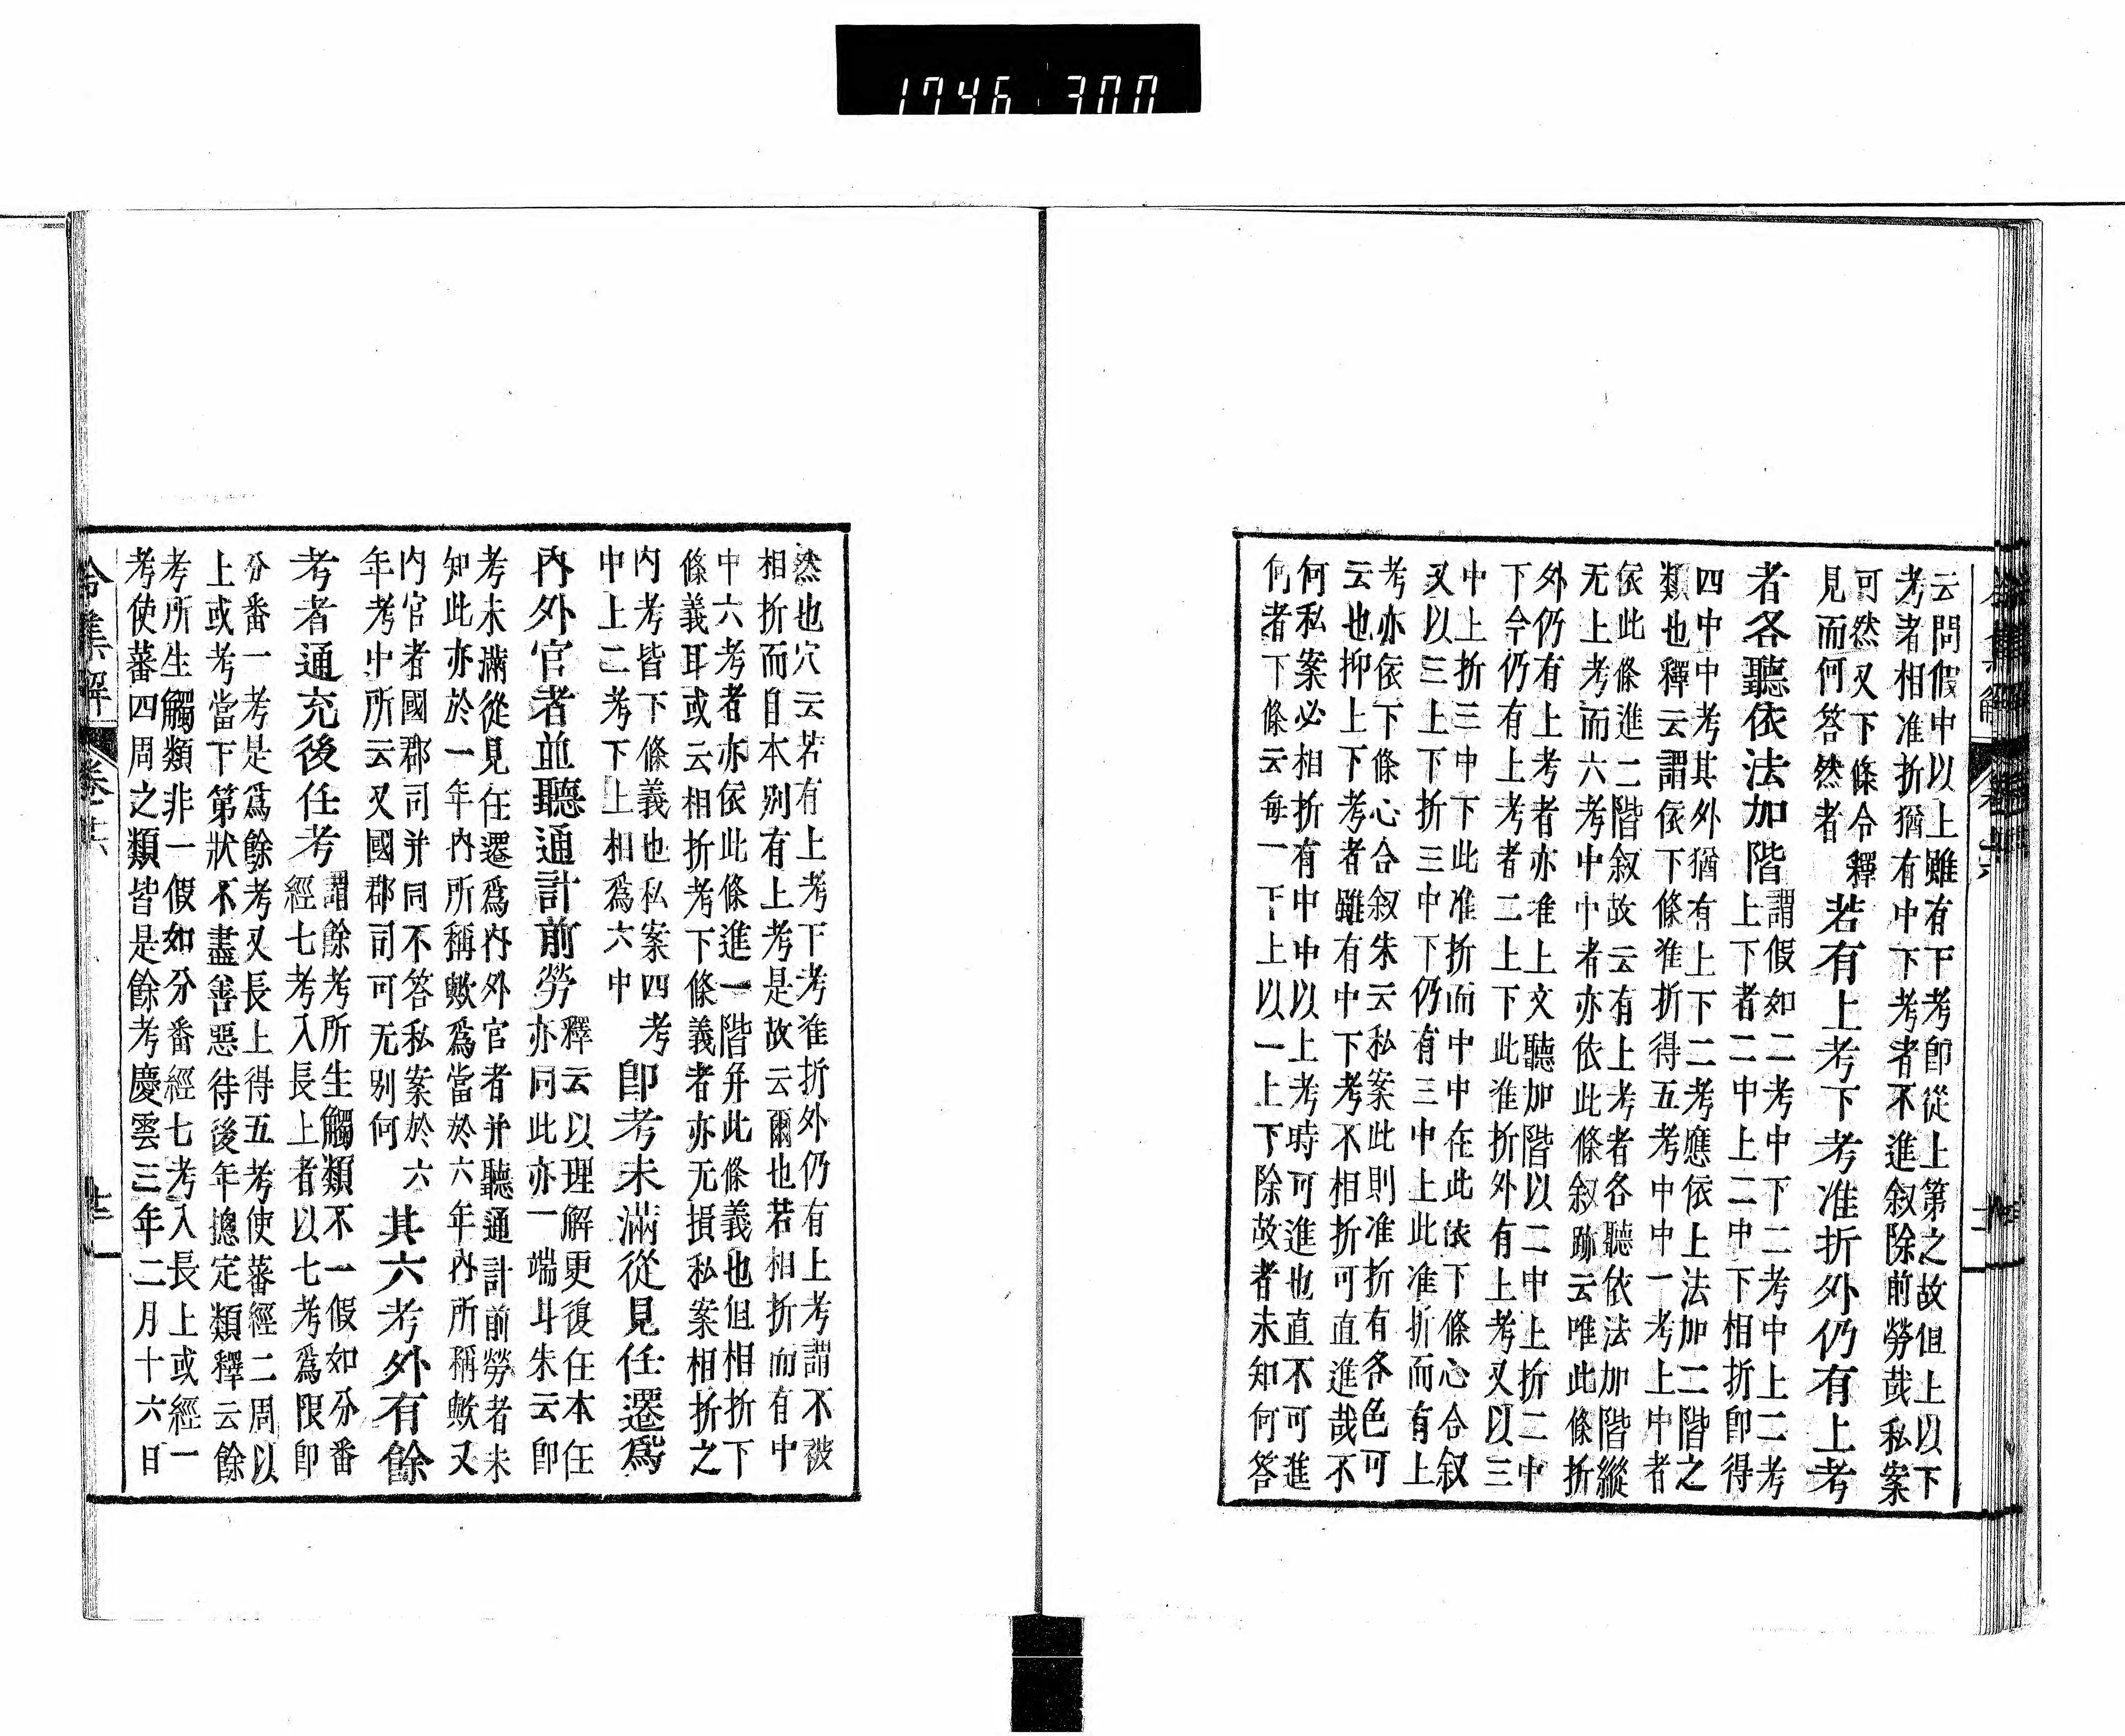 1746 300
云問假中以上雖有下考卽從上第之故但上以下
考者相准折猶有中下考者不進叙除前勞哉私案
可然又下條令釋
見而何答然者
若有上考下考准折外仍有上考
者各聽依法加階
謂假如二考中下二考中上二考
上下者二中上二中下相折卽得
四中中考其外猶有上下二考應依上法加二階之
類也釋云謂依下條准折得五考中中一考上中者
依此條進二階叙故云有上考者各聽依法加階縱
无上考而六考中中者亦依此條叙跡云唯此條折
外仍有上考者亦准上文聽加階以二中上折二中
下今仍有上考者二上下此准折外有上考又以三
中上折三中下此准折而中中在此依下條心合叙
又以三上下折三中下仍有三中上此准折而有上
考亦依下條心合叙朱云私案此則准折有各色可
云也抑上下考者雖有中下考不相折可直進哉不
何私案必相折有中中以上考時可進也直不可進
何者下條云每一下上以一上下除故者未知何答
然也穴云若有上考下考准折外仍有上考謂不被
相折而自本別有上考是故云爾也若相折而有中
中六考者亦依此條進一階幷此條義也但相折下
條義耳或云相折考下條義者亦无損私案相折之
內考皆下條義也私案四考
中上二考下上相爲六中
卽考未滿從見任遷爲
內外官者並聽通計前勞
釋云以理解更復任本任
亦同此亦一端斗朱云卽
考未滿從見任遷爲內外官者并聽通計前勞者未
知此亦於一年內所稱歟爲當於六年內所稱歟又
內官者國郡司并同不答私案於六
年考中所云又國郡司可无別何
其六考外有餘
考者通充後任考
謂餘考所生觸類不一假如分番
經七考入長上者以七考爲限卽
分番一考是爲餘考又長上得五考使蕃經二周以
上或考當下第狀不盡善惡待後年摠定類釋云餘
考所生觸類非一假如分番經七考入長上或經一
考使蕃四周之類皆是餘考慶雲三年二月十六日
令集解 卷二十六